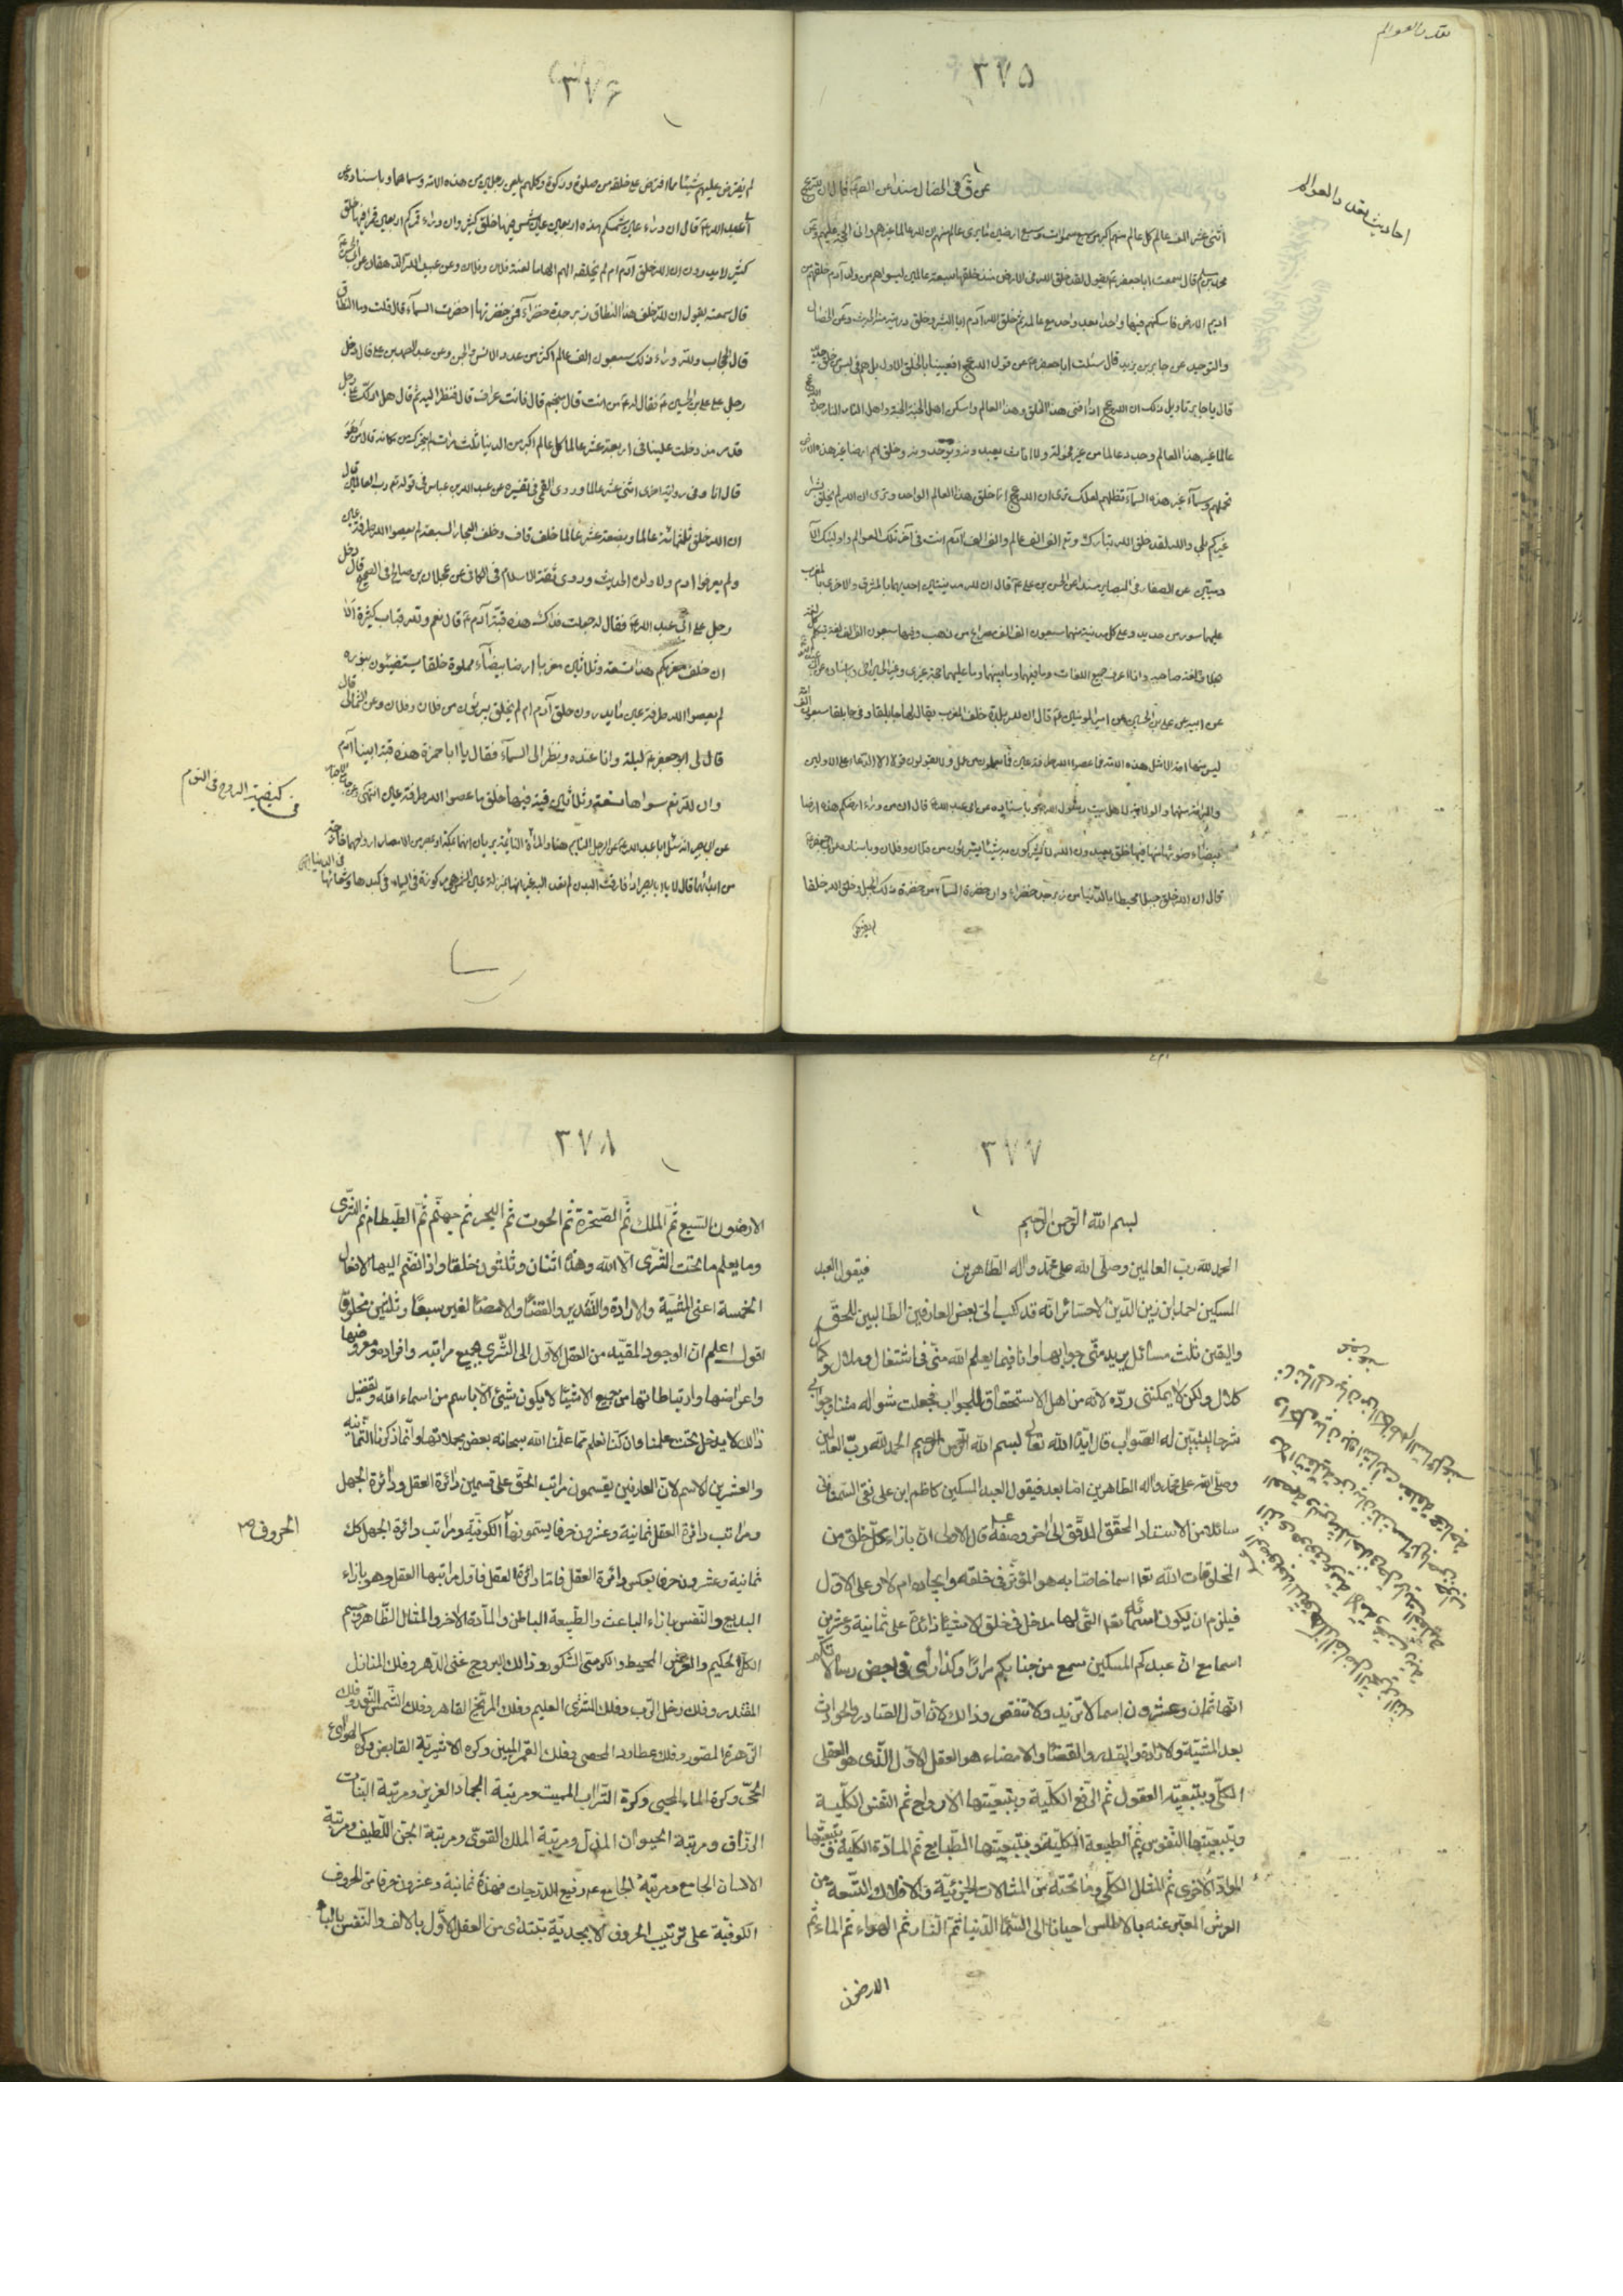 تعدد العوالم
٣٧٥
احاديث تعدد العوالم
اثنى عشر الف عالم كل عالم منهم اكبر من سبع سموات وسبع ارضين ما يرى عالم منهم ان لله عالما غيرهم وانى الحجة عليهم
محمد بن مسلم قال سمعت ابا جعفر ع يقول لقد خلق الله فى الارض منذ خلقها سبعة عالمين ليس هم من ولد آدم خلقهم من
اديم الارض فاسكنهم فيها واحدا بعد واحد مع عالمه ثم خلق الله آدم ابا البشر وخلق ذريته منه الحديث وعن الخصال
والتوحيد عن جابر بن يزيد قال سئلت ابا جعفر ع عن قول الله عج افعيينا بالخلق الاول بل هم فى لبس من خلق جديد
قال يا جابر تاويل ذلك ان الله عج اذا افنى هذا الخلق وهذا العالم واسكن اهل الجنة الجنة واهل النار النار جدد
عالما غير هذا العالم وجدد عالما من غير فحولة ولا اناث يعبدونه ويوحدونه وخلق لهم ارضا غير هذه الارض
تحملهم وسمآء غير هذه السمآء تظلهم لعلك ترى ان الله عج انما خلق هذا العالم الواحد وترى ان الله لم يخلق بشرا
غيركم بلى والله لقد خلق الله تبارك وتع الف الف عالم والف الف آدم انت فى آخر تلك العوالم واولئك الآ
دميين عن الصفار فى البصاير مسندا عن الحسن بن على ع قال ان لله مدينتين احديهما بالمشرق والاخرى بالمغرب
عليهما سور من حديد وعلى كل مدينة منهما سبعون الف الف مصراع من ذهب وفيها سبعون الف الف لغة يتكلم كل لغة
بخلاف لغة صاحبه وانا اعرف جميع اللغات وما فيهما وما بينهما وما عليهما حجة غيرى وغير الحسين اخى وباسناده عن ابى عبد الله
عن ابيه عن على بن الحسين عن امير المؤمنين ع قال ان لله بلدة خلف المغرب يقال لها جابلقا وفى جابلقا سبعون الف امة
ليس منها امة الا مثل هذه الامة فما عصوا الله طرفة عين فما يعملون من عمل ولا يقولون قولا الا الدعاء على الاولين
والبرائة منهما والولاية لاهل بيت رسول الله ص وباسناده عن ابى عبد الله قال ان من وراء ارضكم هذه ارضا
بيضاء ضوئها منها فيها خلق يعبدون الله لا يشركون به شيئا يتبرؤن من فلان وفلان وباسناده عن ابى جعفر ع
قال ان الله خلق جبلا محيطا بالدنيا من زبرجد خضراء وان خضرة السمآء من خضرة ذلك الجبل وخلق الله خلقا
لم يفترض
٣٧٦
لم يفترض عليهم شيئا مما افترض على خلقه من صلوة وزكوة وكلهم يلعن رجلين من هذه الامة وسماهما وباسناده عن
ابى عبد الله ع قال ان وراء عين شمسكم هذه اربعين عين شمس فيها خلق كثير وان وراء قمركم اربعين قمرا فيها خلق
كثير لا يدرون ان الله خلق آدم ام لم يخلقه الهموا الهاما لعنة فلان وفلان وعن عبيد الله الدهقان عن ابى الحسن ع
قال سمعته يقول ان لله خلف هذا النطاق زبرجدة خضرآء فمن خضرتها اخضرت السمآء قال قلت وما النطاق
قال الحجاب ولله وراء ذلك سبعون الف عالم اكثر من عدد الانس والجن وعن عبد الصمد بن على قال دخل
رجل على على بن الحسين ع فقال له ع من انت قال منجم قال فانت عراف قال فنظر اليه ثم قال هل ادلك على رجل
قد مر منذ دخلت علينا فى اربعة عشر عالما كل عالم اكبر من الدنيا ثلث مرات لم يتحرك من مكانه قال من هو
قال انا وفى رواية اخرى اثنى عشر عالما وروى القمى فى تفسيره عن عبد الله بن عباس فى قوله تع رب العالمين قال
ان الله خلق ثلثمائة عالما وبضعة عشر عالما خلف قاف وخلف البحار السبعة لم يعصوا الله طرفة عين
ولم يعرفوا ادم ولا ولده الحديث وروى ثقة الاسلام فى الكافى عن عجلان بن صالح فى الصحيح قال دخل
رجل على ابى عبد الله ع فقال له جعلت فداك هذه قبة آدم ع قال نعم ولله قباب كثيرة الا
ان خلف مغربكم هذا تسعة وثلاثين مغربا ارضا بيضآء مملوة خلقا يستضيئون بنوره
لم يعصوا الله طرفة عين ما يدرون خلق آدم ام لم يخلق يبرؤن من فلان وفلان وعن الثمالى قال
قال لى ابو جعفر ع ليلة وانا عنده ونظر الى السمآء فقال يا ابا حمزة هذه قبة ابينا آدم
وان لله تع سواها تسعة وثلاثين قبة فيها خلق ما عصوا الله طرفة عين انتهى
كيفية الروح فى النوم
عن ابى بصير انه سئل ابا عبد الله ع عن الرجل النايم هنا والمرأة النائمة يريان انهما بمكة او بمصر من الامصار ارواحهما خارجة
من ابدانهما قال لا يا ابا بصير اذا فارقت البدن لم تعد اليه غير انها بمنزلة عين الشمس هى مركوزة فى السماء فى كبدها وشعاعها فى الدنيا انتهى
٣٧٧
بسم الله الرحمن الرحيم
الحمد لله رب العالمين وصلى الله على محمد واله الطاهرين فيقول العبد
المسكين احمد ابن زين الدين الاحسائى انه قد كتب الى بعض العارفين الطالبين للحق
واليقين ثلث مسائل يريد منى جوابها وانا فيما يعلم الله منى فى اشتغال وملال وكمال
كلال ولكن لا يمكننى رده لانه من اهل الاستحقاق للجواب فجعلت سؤاله متنا وجوابى
شرحا ليتبين له الصواب قال ايده الله تعالى بسم الله الرحمن الرحيم الحمد لله رب العالمين
وصلى الله على محمد واله الطاهرين اما بعد فيقول العبد المسكين كاظم ابن على نقى السمنانى
سائلا من الاستاد المحقق المدقق الى اخر وصفه قال الاولى ان بازاء كل خلق من
المخلوقات الله تعا اسما خاصا به هو المؤثر فى خلقه وايجاده ام لا وعلى الاول
فيلزم ان يكون اسمائه تعا التى لها مدخل فى خلق الاشيآء زائدة على ثمانية وعشرين
اسما مع ان عبدكم المسكين سمع من جنابكم مرارا وكذا رأى فى بعض رسالاتكم
انها ثمان وعشرون اسما لا تزيد ولا تنقص وذلك لان اول الصادر والحوادث
بعد المشية والارادة والقدر والقضآء والامضاء هو العقل الاول الذى هو العقل
الكلى وبتبعيته العقول ثم الروح الكلية وبتبعيتها الارواح ثم النفس الكلية
وبتبعيتها النفوس ثم الطبيعة الكلية وبتبعيتها الطبايع ثم المادة الكلية وبتبعيتها
المواد الاخرى ثم المثال الكلى وما تحته من المثالات الجزئية والافلاك التسعة من
العرش المعبر عنه بالاطلس احيانا الى السمآء الدنيا ثم النار ثم الهواء ثم الماء ثم
الارضون
٣٧٨
الارضون السبع ثم الملك ثم الصخرة ثم الحوت ثم البحر ثم جهنم ثم الطبطام ثم الثرى
وما يعلم ما تحت الثرى الا الله وهذه اثنان وثلثون خلقا واذا نضم اليها الافعال
الخمسة اعنى المشية والارادة والتقدير والقضآء والامضآء لغير سبعا وثلثين مخلوقا
اقول اعلم ان الوجود المقيد من العقل الاول الى الثرى بجميع مراتبه وافراده ومعروضها
واعراضها وارتباطاتها من جميع الاشيآء لا يكون شيئ الا باسم من اسماء الله وتفصيل
ذلك لا يدخل تحت علمنا وان كنا نعلم مما علمنا الله سبحانه بعض مجملاتها وانما ذكرنا الثمانية
والعشرين الاسم لان العارفين يقسمون مراتب الحق على قسمين دائرة العقل ودائرة الجهل
ومراتب دائرة العقل ثمانية وعشرون حرفا يسمونها الكونية ومراتب دائرة الجهل كك
الحروف
ثمانية وعشرون حرفا بعكس دائرة العقل فاما دائرة العقل فاول مراتبها العقل وهو بازاء
البديع والنفس بازاء الباعث والطبيعة الباطن والمآدة الاخر والمثال الظاهر وجسم
الكل الحكيم والعرش المحيط والكرسى الشكور وفلك البروج غنى الدهر وفلك المنازل
المقتدر وفلك زحل الرب وفلك المشترى العليم وفلك المريخ القاهر وفلك الشمس النور وفلك
الزهرة المصور وفلك عطارد المحصى وفلك القمر المبين وكرة الاثيرية القابض وكرة الهوائى
الحى وكرة الماء المحيى وكرة التراب المميت ومرتبة الجماد العزيز ومرتبة النبات
الرزاق ومرتبة الحيوان المذل ومرتبة الملك القوى ومرتبة الجن اللطيف ومرتبة
الانسان الجامع ومرتبة الجامع ع رفيع الدرجات فهذه ثمانية وعشرون حرفا من الحروف
الكونية على ترتيب الحروف الابجدية تبتدى من العقل الاول بالالف والنفس بالباء